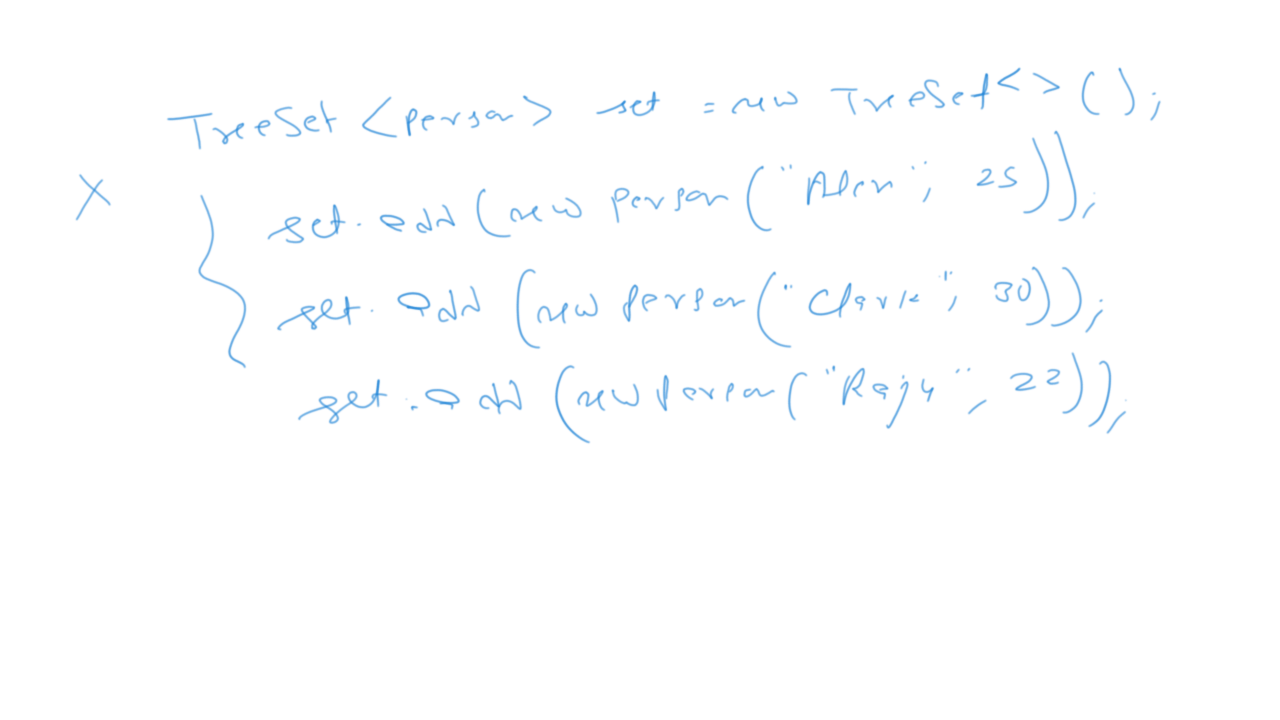 TreeSet <Person> set = new TreeSet<>();
X
set.add (new Person("Alen", 25));
set.add (new Person("Clark", 30));
set.add (new Person("Raju", 22));